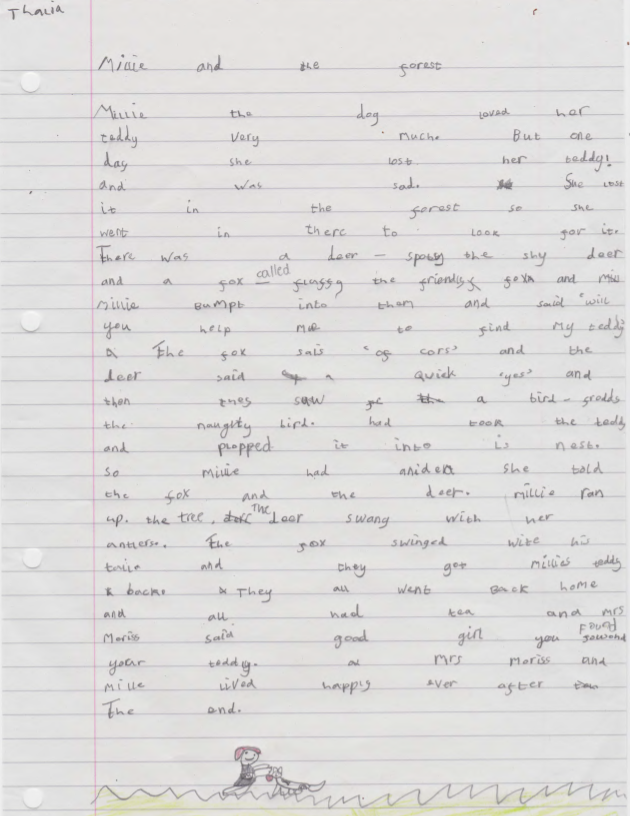 Thalia
Millie and the forest
Millie the dog loved her
teddy very much. But one
day she lost her teddy!
and was sad. She lost
it in the forest so she
went in there to look for it.
There was a deer - spotsy the shy deer
and a fox called fluffy the friendly fox and
Millie Bumpt into them and said "will
you help me to find my teddy"
The fox sais "of cors" and the
deer said a quick "yes" and
then they saw a bird - 
the naughty bird. had took the teddy
and propped it into is nest.
so Millie had aniden she told
the fox and the deer. Millie ran
up. the tree. The deer swang with her
antlers. The fox swinged with his
taile and they got millies teddy
back. They all went Back home
and all had tea and mrs
Moriss said good girl you Found
your teddy. Mrs Moriss and
Millie lived happiy ever after
The end.